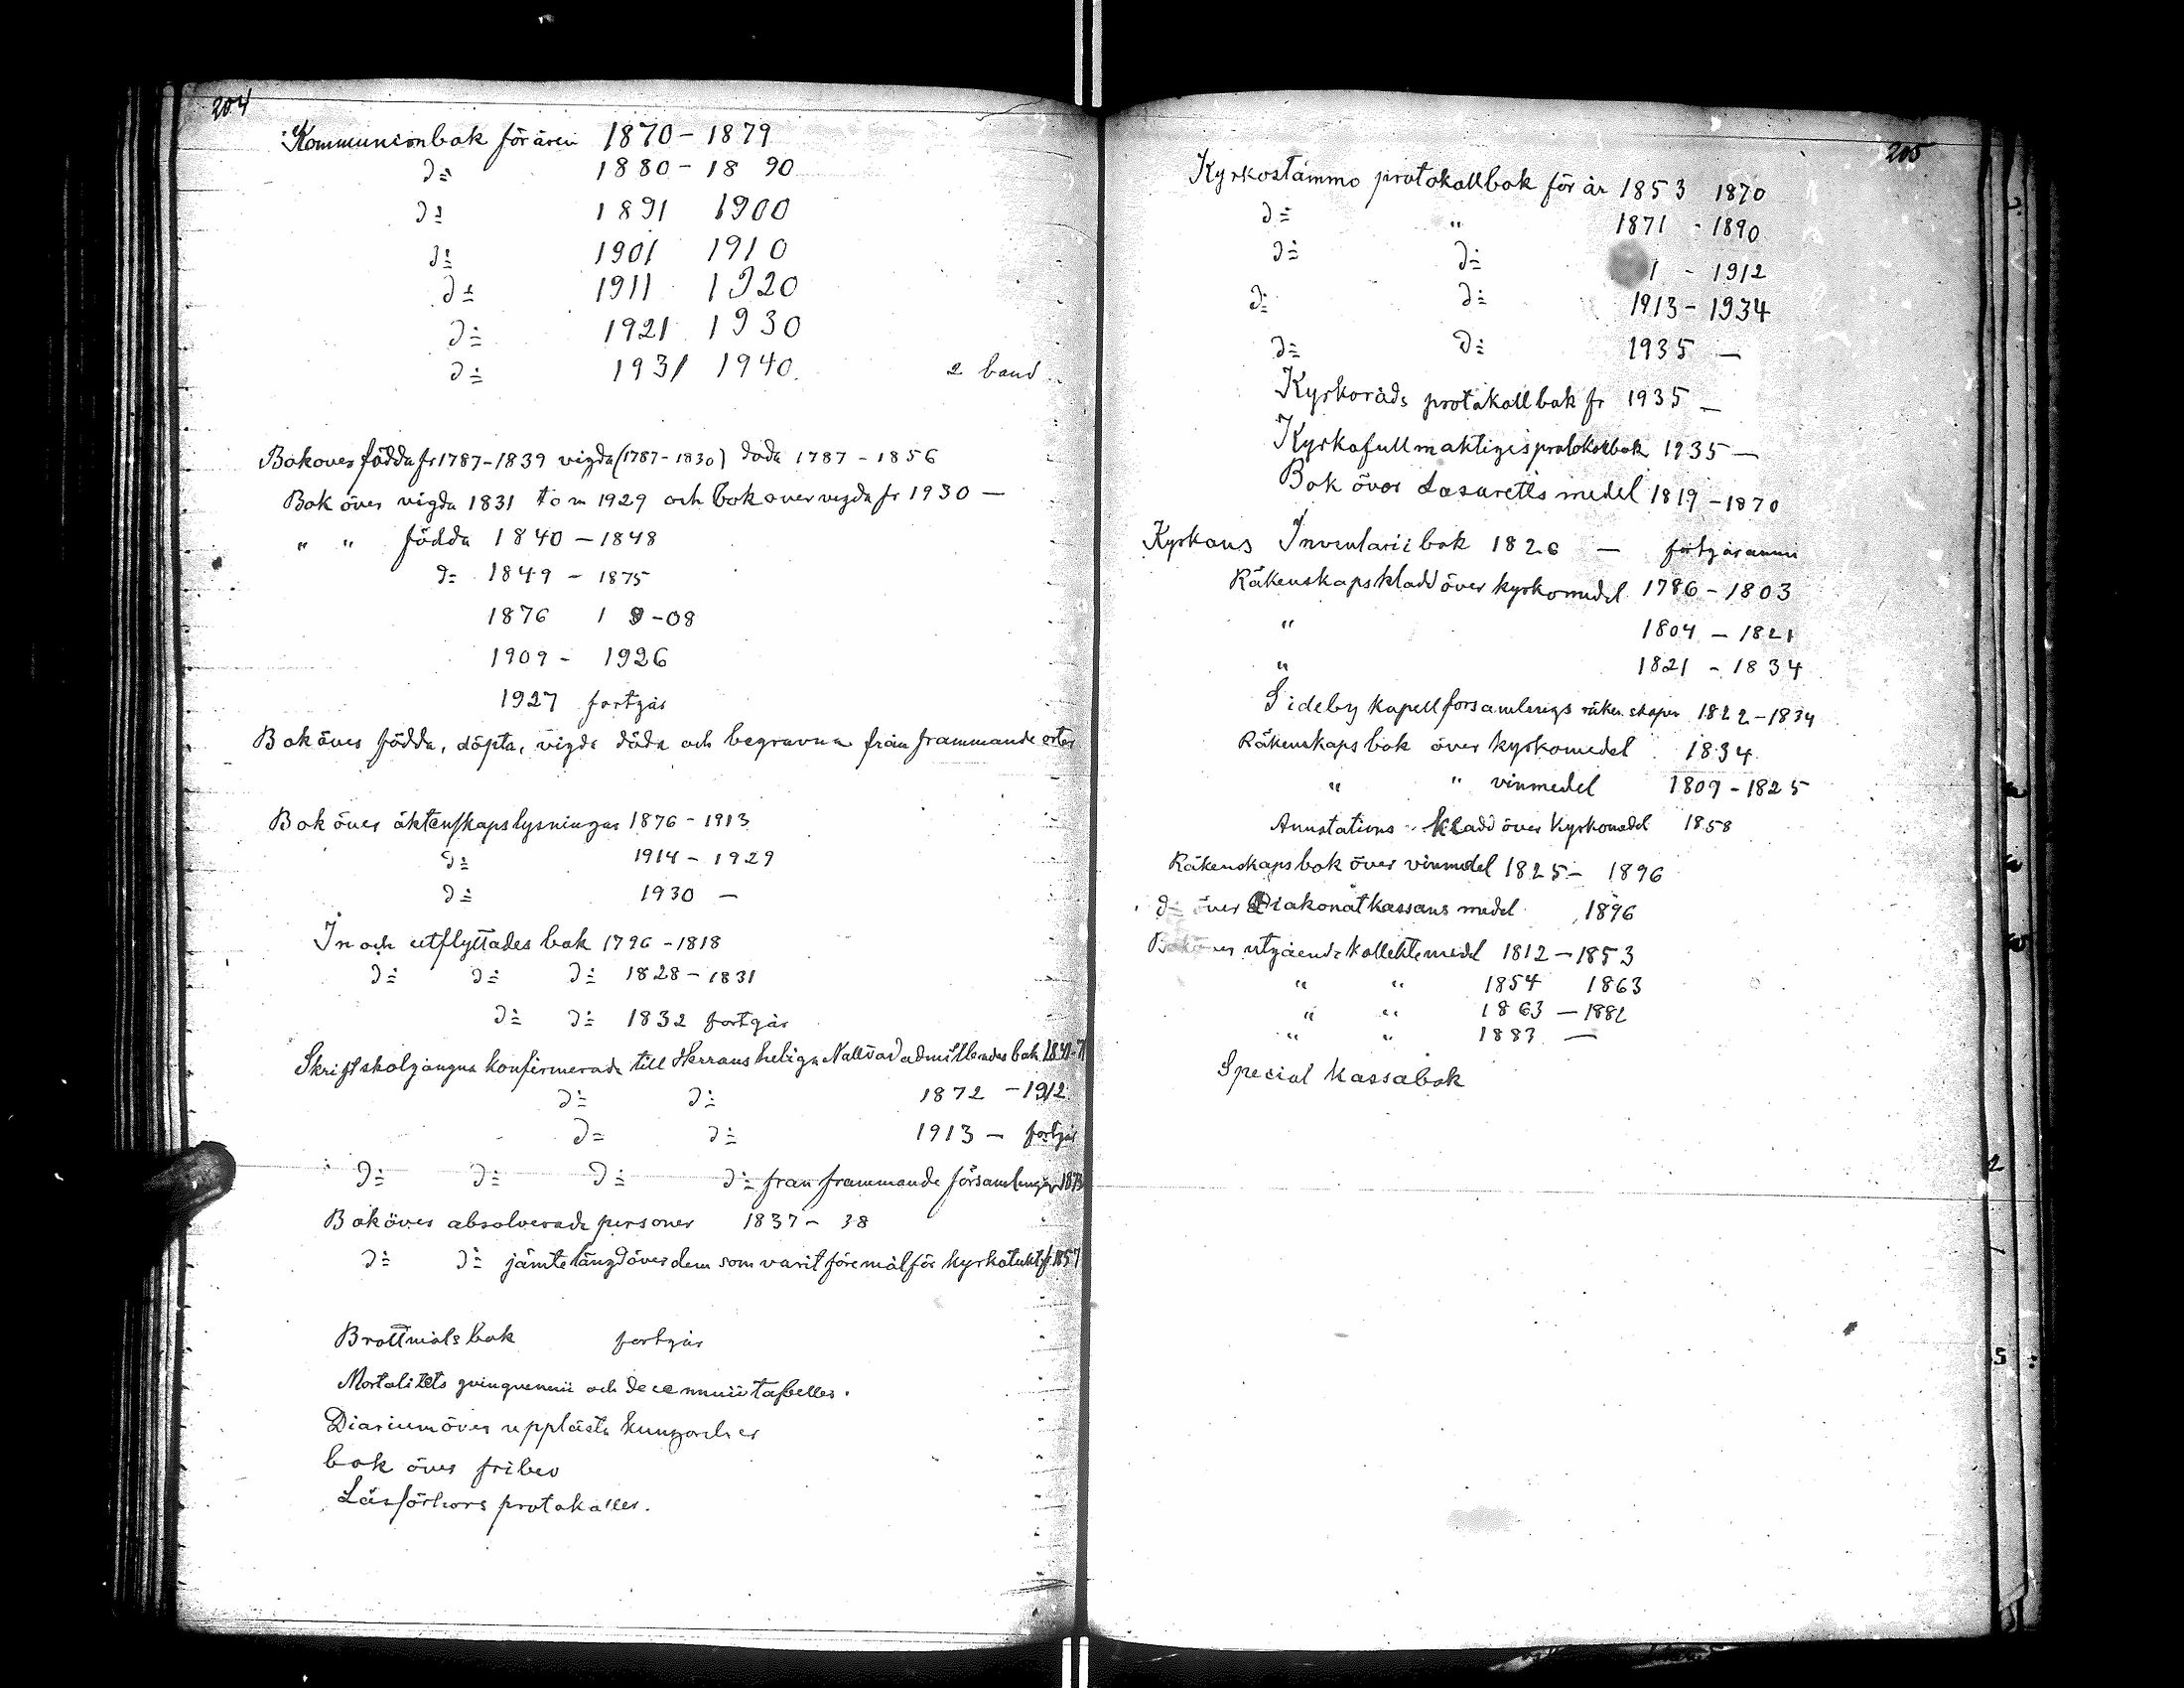 204
Kommunionbok för åren 1870-1879
D:o 1880-18 90
D:o 1891 1900
D:o 1901 1910
D:o 1911 1920
D:o 1921 1930
D:o 1931 1940. 2 band
Bok över födda fr 1787-1839 vigda (1787-1830) döda 1787-1856
Bok över vigda 1831 tom 1929 och bok over vigda fr 1930 —
" " födda 1840-1848
D:o 1849-1875
1876 1 9-08
1909- 1926
1927 fortgår
Bok över födda, döpta, vigda döda och begravna från frammande orter
Bok över äktenskapslysningar 1876-1913
D:o 1914-1929
D:o 1930 —
In och utflyttades bok 1796-1818
D:o D:o D:o 1828-1831
D:o D:o 1832 fortgår
Skriftskolgångna konfirmerade till Herrans heliga Nattvard admitterades bok
D:o D:o 1872 -1912
D:o D:o 1913 - fortgår
D:o D:o D:o D:o fran frammande församlingar 1873
Bok över absolverade personer 1837- 38
D:o D:o jämte längd över dem som varit föremål för kyrkotukt fr 1857
Brottmåls bok fortgår
Mortalitets qvinquennii och decennnii tabeller.
Diarium över upplästa kungorelser
bok över fribev
Läsförhors protokaller.
205
Kyrkostämmo protokollbok för år 1853 1870
D:o " 1871 - 1890
D:o D:o 1 - 1912
D:o D:o 1913-1934
D:o D:o 1935 —
Kyrkoråds protokollbok fr 1935 —
Kyrkofullmaktiges protokolbok 1935 —
Bok över Lasaretts medel 1819-1870
Kyrkans Inventarii bok 1826 — fortgår ännu
Räkenskapskladd över kyrkomedel 1786-1803
" 1804 - 1821
" 1821 - 1834
Sideby Kapellforsamlings räken skaper 1822-1834
Räkenskaps bok över kyrkomedel 1834
" " vinmedel 1809-1825
Annotations - kladd över kyrkomedel 1858
Räkenskapsbok över vinmedel 1825- 1896
D:o över Diakonatkassans medel 1896
Bok över utgående kollektemedel 1812-1853
" " 1854 1863
" " 1863 -1882
" " 1883 —
Special kassabok